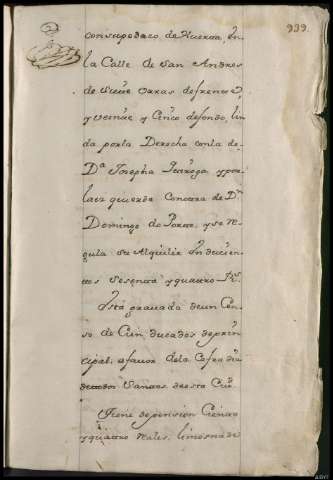 939.
con su pedazo de Huerta, En
la Calle de San Andres
de Siete varas de frente
y veinte y Cinco de fondo, lin
da por la Derecha con la de
Dª Josepha y por
la izquierda Con otra de Dn
Domingo de y se re
gula su Alquiler En docien
tos Sesenta y quatro Rs.
Esta gravada de un Cen
so de Cien ducados de prin
cipal, a favor de la Cofradia
de todos Santos de esta Ciud
Tiene de pension Ciento
y quatro reales, limosna de